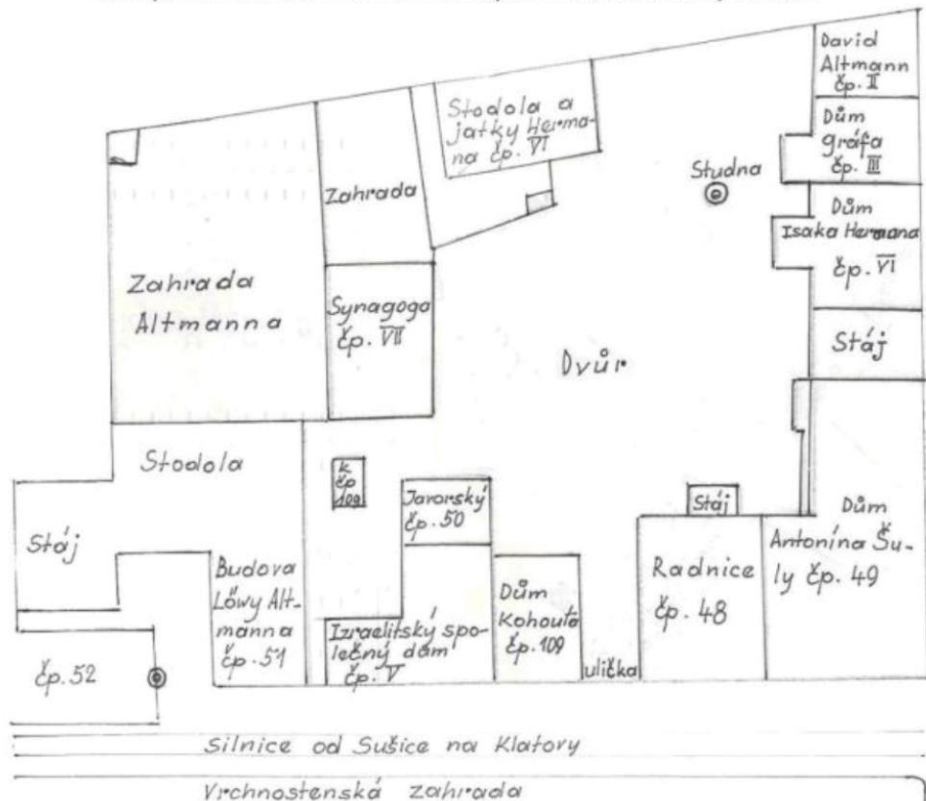 David
Altmann
čp. II
Dům
gráfa
čp. III
Stodola a
jatky Herma-
na čp. VI
Studna
Zahrada
Dům
Isaka Hermana
čp. VI
Zahrada
Altmanna
Synagoga
čp. VII
Stáj
Dvůr
Stodola
k
čp
109
Javorský
čp. 50
Stáj
Dům
Antonína Šu-
ly čp. 49
Stáj
Budova
Löwy Alt-
manna
čp. 51
Izraelitský spo-
lečný dům
čp. V
Dům
Kohouta
čp. 109
Radnice
čp. 48
ulička
čp. 52
Silnice od Sušice na Klatovy
Vrchnostenská zahrada